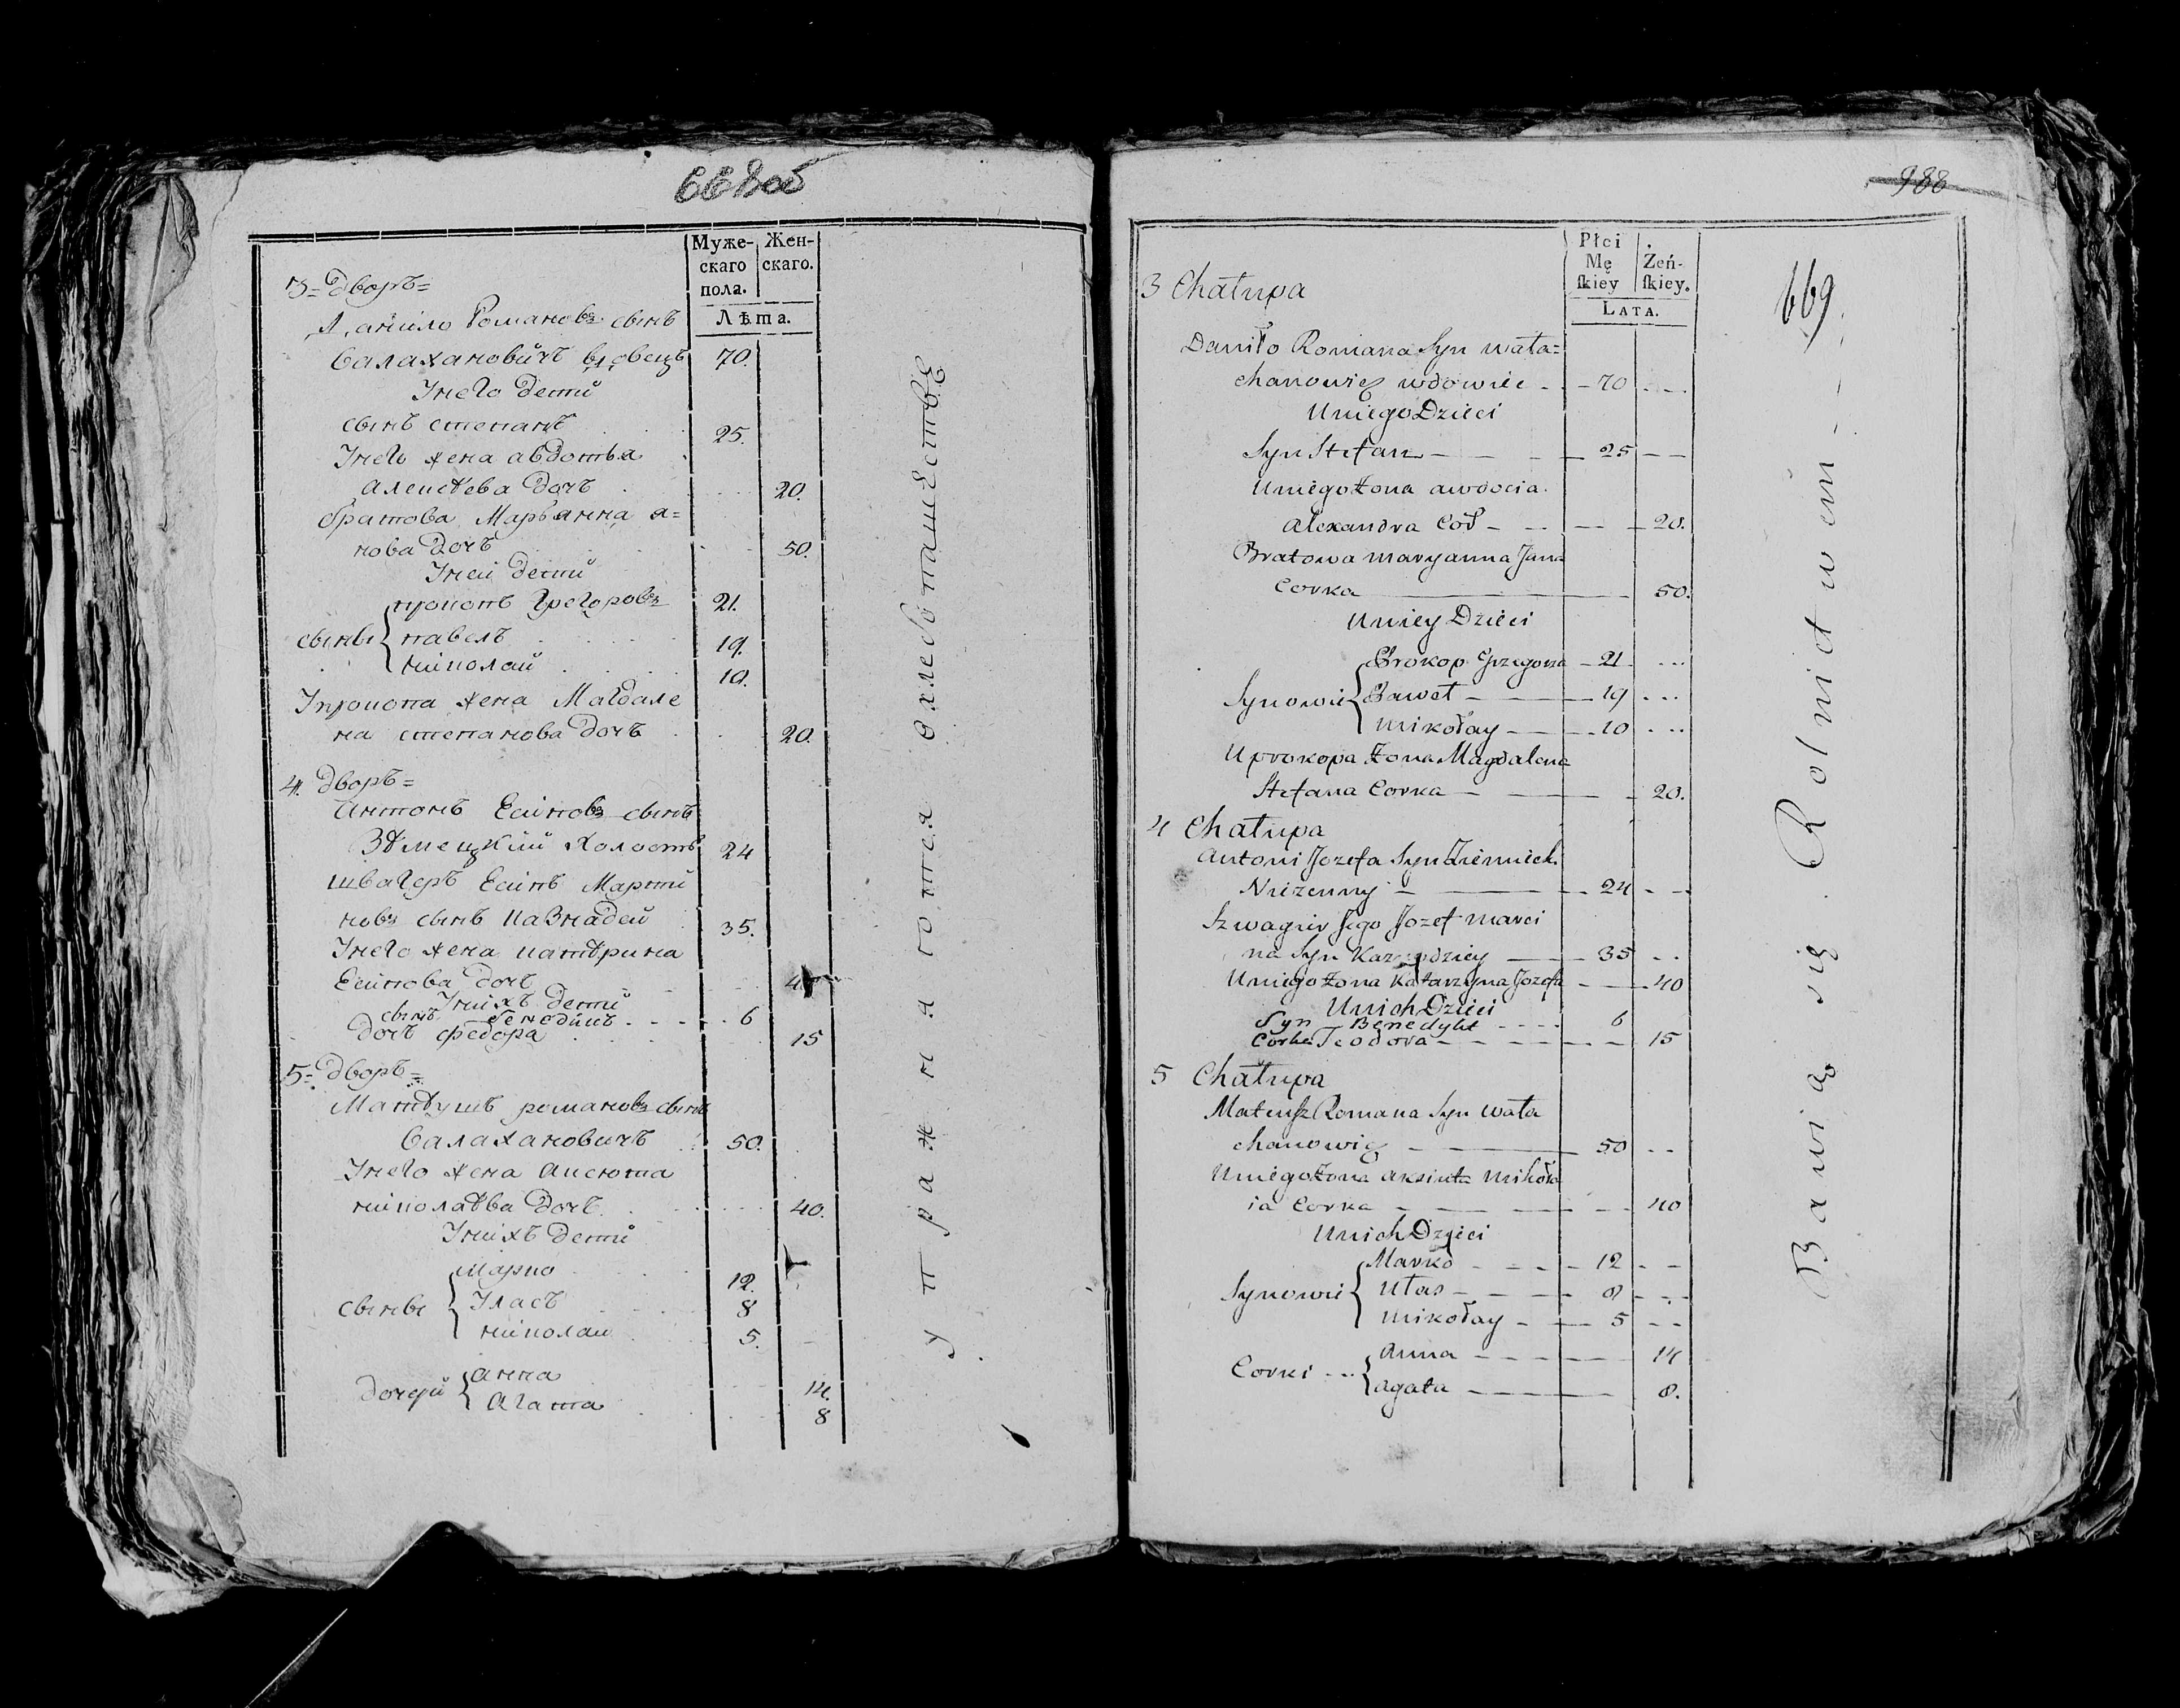 668 об
Муже-
скаго
пола.
Жен-
скаго.
Лѣта.
3= Дворъ=
Данило Романовъ сынъ
Валахановичъ вдовецъ 70.
Унего дети
сынъ степанъ 25.
Унего жена авдотья
Алексѣева Дочъ 20.
братова Марьянна я=
нова Дочъ 50.
Уней дети
сынвы { прокопъ Грегоровъ 21.
павелъ 19.
николай 10.
Упрокопа жена Магдале
на степанова Дочъ 20.
4. Дворъ=
Антонъ Есиповъ сынъ
Зѣмецкій Холостъ 24
швагеръ Есипъ Марти
новъ сынъ Казнадей 35.
Унего жена катѣрина
Есипова Дочъ
Унихъ дети
сынъ бенедикъ 6
Дочъ федора 15
5= Дворъ=
Матѣушъ романовъ сынъ
Валахановичъ 50.
Унего жена Аксюта
николаѣва Дочъ 40.
Унихъ дети
сынвы { Марко 12.
Уласъ 8
николай 5.
Дочери { Анна 14.
Агата 8
упражняются в хлебопашестве
988
669
Płci
Mę
ſkiey
Żeń-
ſkiey.
Lata.
3 Chałupa
Daniło Romana Syn wała=
chanowicz wdowiec - - 70 - -
Uniego Dzieci
Syn Stefan - - - 25 - -
Uniego Żona awdocia
Alexandra Cor - - - - 20.
Bratowa maryanna Jana
Corka 50.
Uniey Dzieci
Synowie { Prokop Grzegorza - 21 - ...
Paweł - - 19 - ...
Mikołay - - 10 - ...
Uprokopa Żona Magdalena
Stefana Corka - - - 20.
4 Chałupa
Antoni Jozefa Syn Ziemieck
Nieżenny - - - 24 - - -
Szwagier Jego Jozef Marci
na Syn Kaznodziey - 35 - -
Uniego Żona Katarzyna Jozefa - - 40
Unich Dzieci
Syn Benedykt - - - - 6
Corka Teodora - - - - - - 15
5 Chałupa
Mateusz Romana Syn wała
chanowicz - - 50 - -
Uniego Żona Aksiuta Mikoła
ia Corka - - - - - 40
Unich Dzieci
Synowie { Marko - - - - 12 - -
Ułas - - - - 8 - - -
Mikołay - - 5 - -
Corki - - { Anna - - - - 14
Agata - - 8.
Bawią się Rolnictwem - - -